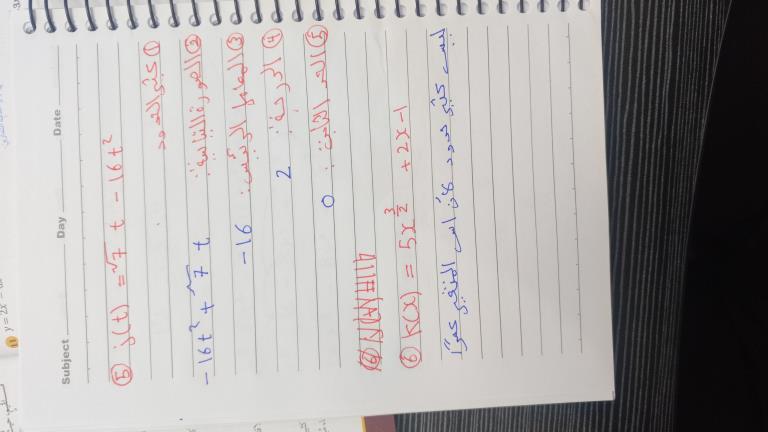 Subject Day Date
⑤ j(t) = √7 t - 16t²
① كثير الحدود
② الصورة القياسية: -16t² + √7 t
③ المعامل الرئيس: -16
④ الدرجة: 2
⑤ الحد الثابت: 0
⑥ K(x) = 5x^(3/2) + 2x - 1
ليس كثير حدود لأن أس المتغير كسرًا
11 y = 2x